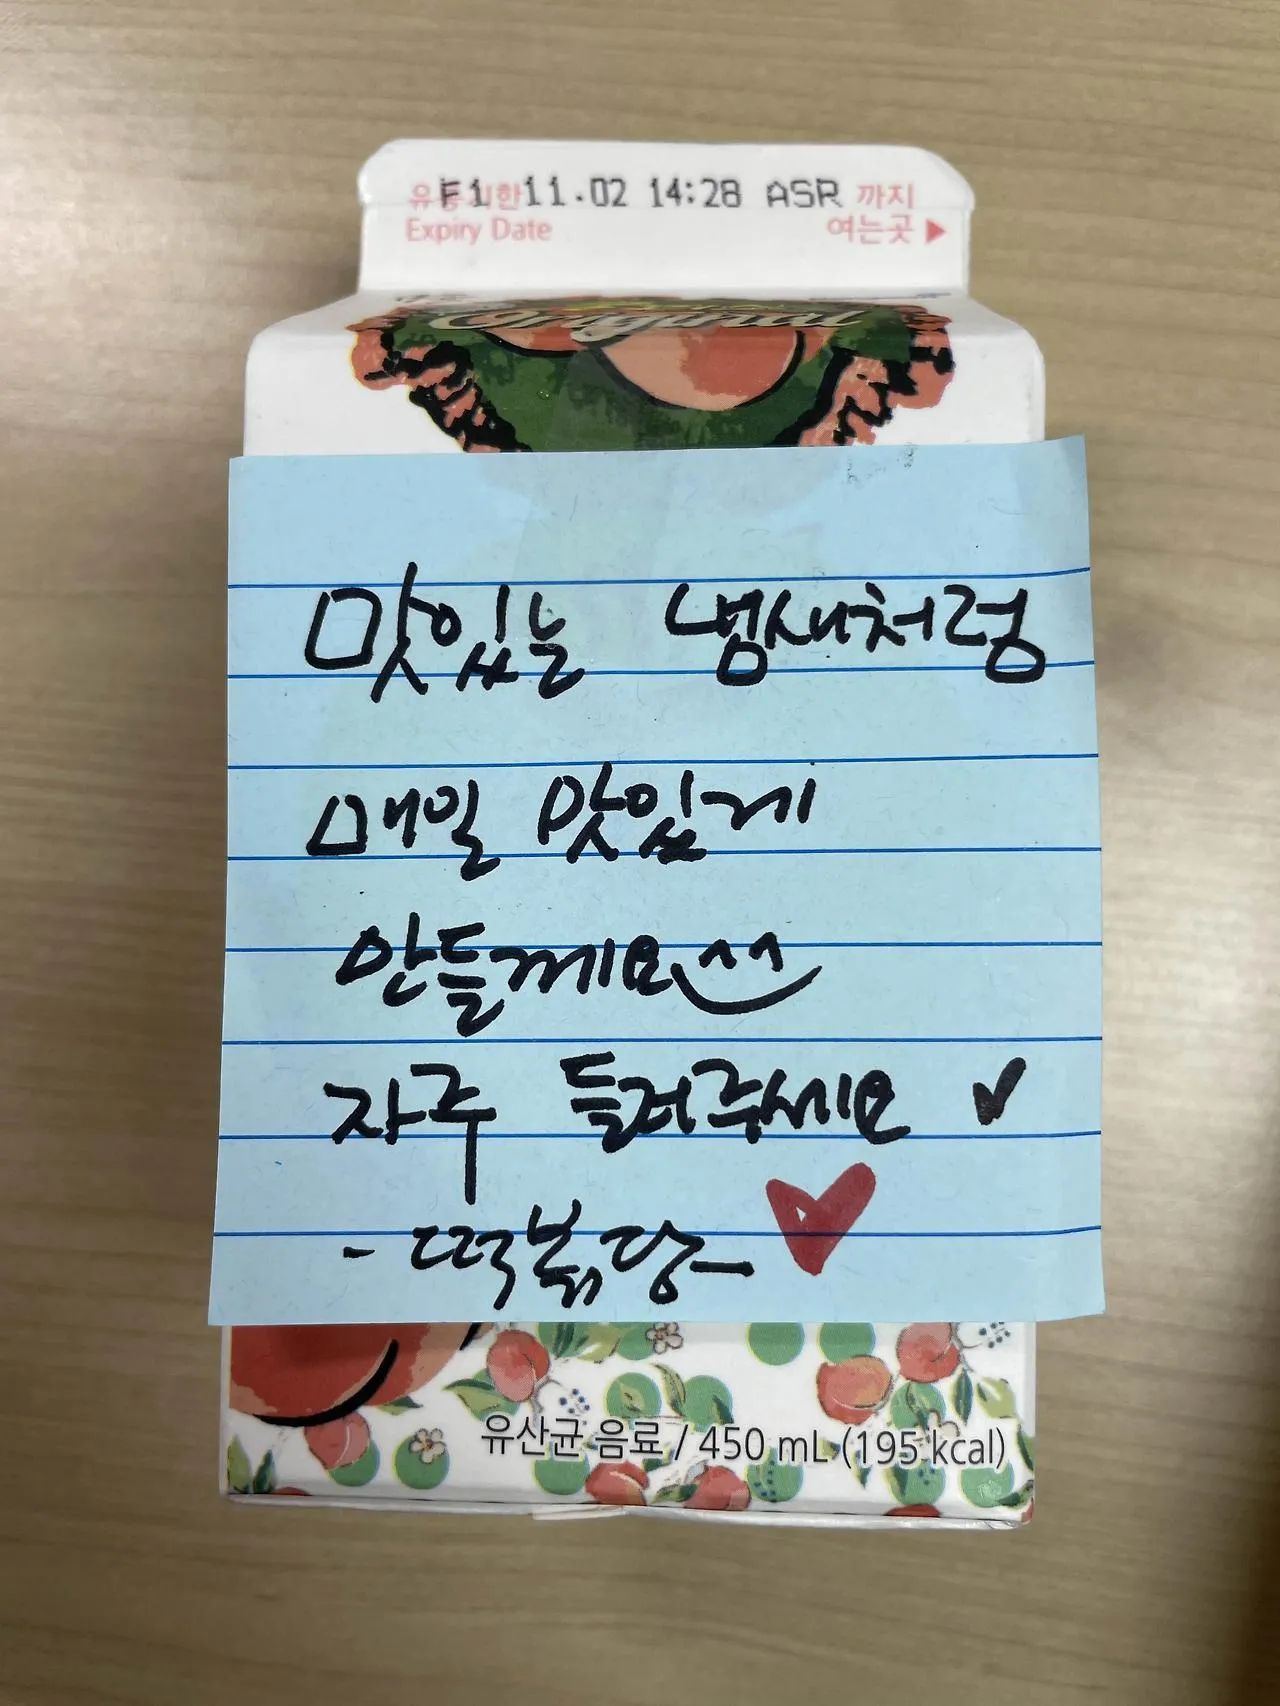 유통기한 F1 11.02 14:28 ASR 까지
Expiry Date 여는곳 ▶
Original
맛있는 냄새처럼
매일 맛있게
만들게요^^
자주 들려주세요
- 떡볶당 -
유산균 음료 / 450 mL (195 kcal)